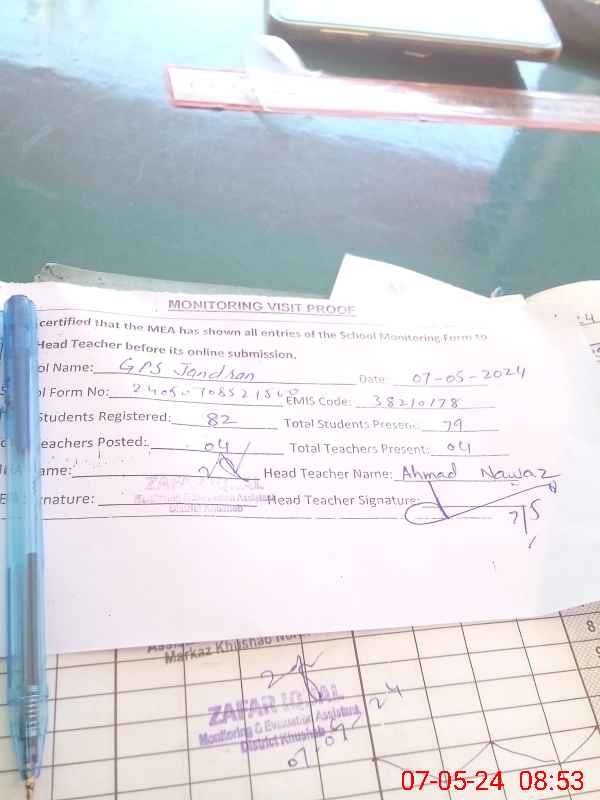 MONITORING VISIT PROOF
certified that the MEA has shown all entries of the School Monitoring Form to
Head Teacher before its online submission.
ol Name: GPS Jandran Date: 07-05-2024
ol Form No: EMIS Code: 38210178
Students Registered: 82 Total Students Present: 79
eachers Posted: 04 Total Teachers Present: 04
ame: Head Teacher Name: Ahmad Nawaz
ZAFAR IQBAL
Monitoring & Evaluation Assistant
nature: Head Teacher Signature: 7/5
District Khushab
Markaz Khushab
ZAFAR IQBAL
Monitoring & Evaluation Assistant
District Khushab
8
9
07-05-24 08:53